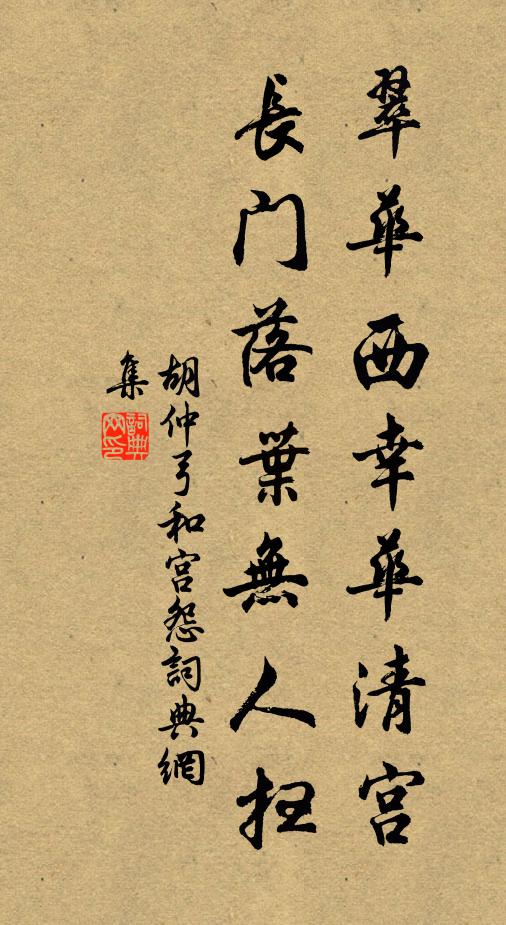 翠華西幸華清宮
長門落葉無人掃
胡仲弓和宮怨詞典網
集
詞典
网印